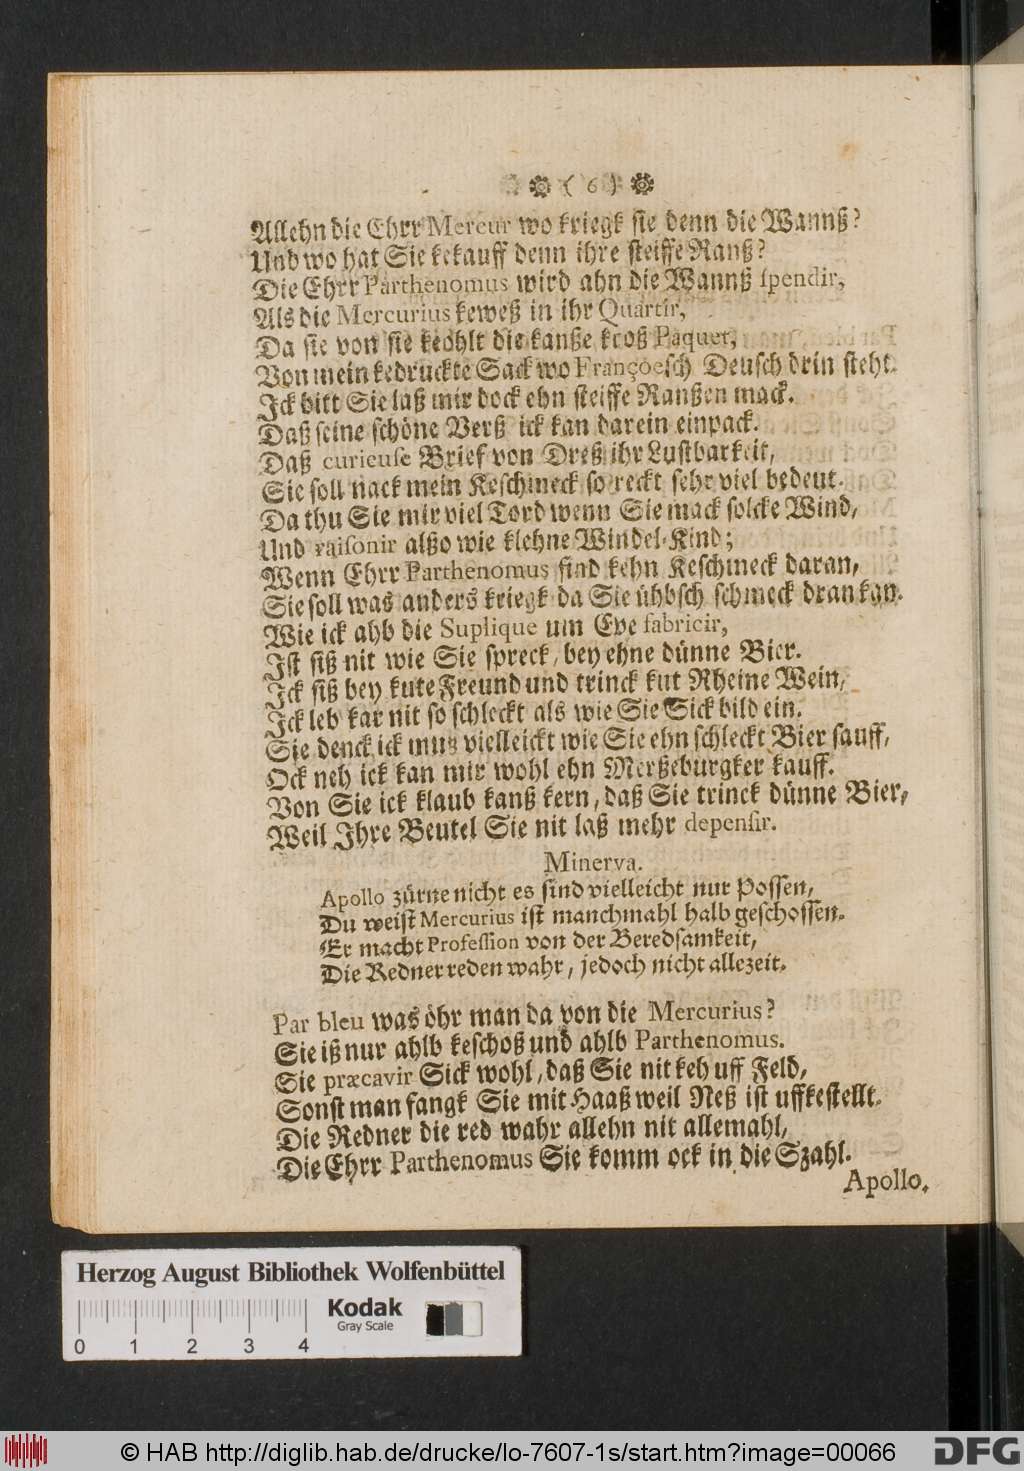 ( 6 )
Allehn die Ehrr Mercur wo kriegk sie denn die Wannß?
Und wo hat Sie kekauff denn ihre steiffe Ranß?
Die Ehrr Parthenomus wird ahn die Wannß spendir,
Als die Mercurius keweß in ihr Quartir,
Da sie von sie keohlt die kanße kroß Paquet,
Von mein kedruckte Sack wo Françoesch Deusch drin steht.
Ick bitt Sie laß mir dock ehn steiffe Ranßen mack.
Daß seine schöne Verß ick kan darein einpack.
Daß curieuse Brief von Dreß ihr Lustbarkeit,
Sie soll nack mein Keschmeck so reckt sehr viel bedeut.
Da thu Sie mir viel Tord wenn Sie mack solcke Wind,
Und raisonir alßo wie klehne Windel-Kind;
Wenn Ehrr Parthenomus find kehn Keschmeck daran,
Sie soll was anders kriegk da Sie ühbsch schmeck dran kan.
Wie ick ahb die Suplique um Eve fabricir,
Ist siß nit wie Sie spreck, bey ehne dünne Bier.
Ick siß bey kute Freund und trinck kut Rheine Wein,
Ick leb kar nit so schleckt als wie Sie Sick bild ein.
Sie denck ick muß vielleickt wie Sie ehn schleckt Bier sauff,
Ock neh ick kan mir wohl ehn Merßeburgker kauff.
Von Sie ick klaub kanß kern, daß Sie trinck dünne Bier,
Weil Ihre Beutel Sie nit laß mehr depensir.
Minerva.
Apollo zürne nicht es sind vielleicht nur Possen,
Du weist Mercurius ist manchmahl halb geschossen.
Er macht Profession von der Beredsamkeit,
Die Redner reden wahr, jedoch nicht allezeit.
Par bleu was öhr man da von die Mercurius?
Sie iß nur ahlb keschoß und ahlb Parthenomus.
Sie præcavir Sick wohl, daß Sie nit keh uff Feld,
Sonst man fangk Sie mit Haaß weil Neß ist uffkestellt.
Die Redner die red wahr allehn nit allemahl,
Die Ehrr Parthenomus Sie komm ock in die Szahl.
Apollo.
Herzog August Bibliothek Wolfenbüttel
Kodak
Gray Scale
0 1 2 3 4
© HAB http://diglib.hab.de/drucke/lo-7607-1s/start.htm?image=00066
DFG